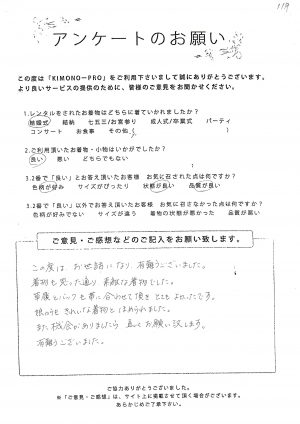 119
アンケートのお願い
この度は「KIMONO-PRO」をご利用下さいまして誠にありがとうございます。
より良いサービスの提供のために、皆様のご意見をお聞かせください。
1.レンタルをされたお着物はどちらに着ていかれましたか?
結婚式 結納 七五三/お宮参り 成人式/卒業式 パーティ
コンサート お食事 その他( )
2.ご利用頂いたお着物・小物はいかがでしたか?
良い 悪い どちらでもない
3.2番で「良い」とお答え頂いたお客様 お気に召された点は何ですか?
色柄が好み サイズがぴったり 状態が良い 品質が良い
3.2番で「良い」以外でお答え頂いたお客様 お気に召さなかった点は何ですか?
色柄が好みでない サイズが違う 着物の状態が悪かった 品質が悪い
ご意見・ご感想などのご記入をお願い致します。
この度は お世話になり 有難うございました。
着物も思った通り 素敵な着物でした。
草履とバッグも帯に合わせて頂き とてもよかったです。
娘のうちも きれいな着物とほめられました。
また、機会がありましたら 宜しくお願い致します。
有難うございました。
ご協力ありがとうございました。
※「ご意見・ご感想」は、サイト上に掲載させて頂く場合がございます。
あらかじめご了承下さい。